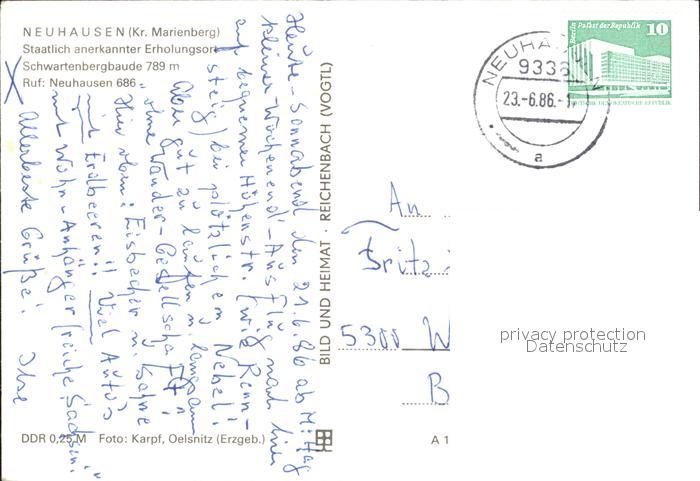 NEUHAUSEN (Kr. Marienberg)
Staatlich anerkannter Erholungsort
Schwartenbergbaude 789 m
Ruf: Neuhausen 686
Heute - Sonnabend den 21.6.86 ab Mittag
kleiner Wochenend-Ausflug nach hier
auf bequemer Höhenstr. (wie Renn-
steig) bei plötzlichem Nebel!
Aber gut zu laufen u. langsam
"ohne Wander-Gesellschaft"
Hier oben: Eisbecher m. Sahne
mit Erdbeeren!! Viel Auto's
mit Wohn-Anhänger (reiche Sachsen!"
Allerbeste Grüße! Ilse
BILD UND HEIMAT · REICHENBACH (VOGTL)
NEUHAUSEN
9336
23.-6.86.-1
a
Berlin Palast der Republik
10
DEUTSCHE DEMOKRATISCHE REPUBLIK
An
Fritz
5300 W
B
privacy protection
Datenschutz
DDR 0,25 M Foto: Karpf, Oelsnitz (Erzgeb.)
A 1